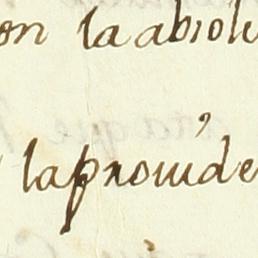 on la absolu
la prouide